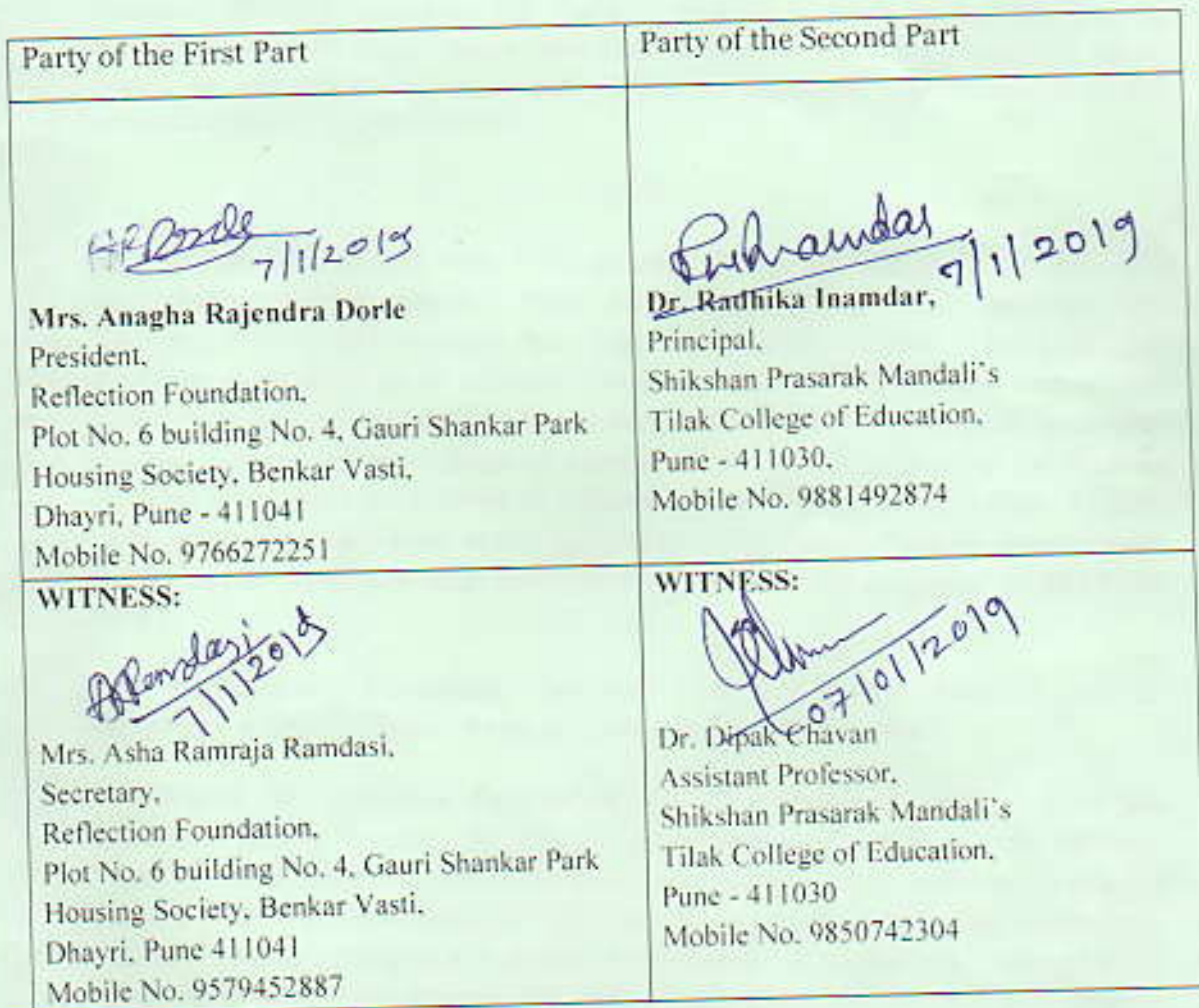 Party of the First Part
Party of the Second Part
ARDorle
7/1/2019
Mrs. Anagha Rajendra Dorle
President,
Reflection Foundation,
Plot No. 6 building No. 4, Gauri Shankar Park
Housing Society, Benkar Vasti,
Dhayri, Pune - 411041
Mobile No. 9766272251
7/1/2019
Dr. Radhika Inamdar,
Principal,
Shikshan Prasarak Mandali's
Tilak College of Education,
Pune - 411030.
Mobile No. 9881492874
WITNESS:
ARamdasi
7/1/2019
Mrs. Asha Ramraja Ramdasi,
Secretary,
Reflection Foundation,
Plot No. 6 building No. 4, Gauri Shankar Park
Housing Society, Benkar Vasti,
Dhayri, Pune 411041
Mobile No. 9579452887
WITNESS:
07/01/2019
Dr. Dipak Chavan
Assistant Professor,
Shikshan Prasarak Mandali's
Tilak College of Education,
Pune - 411030
Mobile No. 9850742304